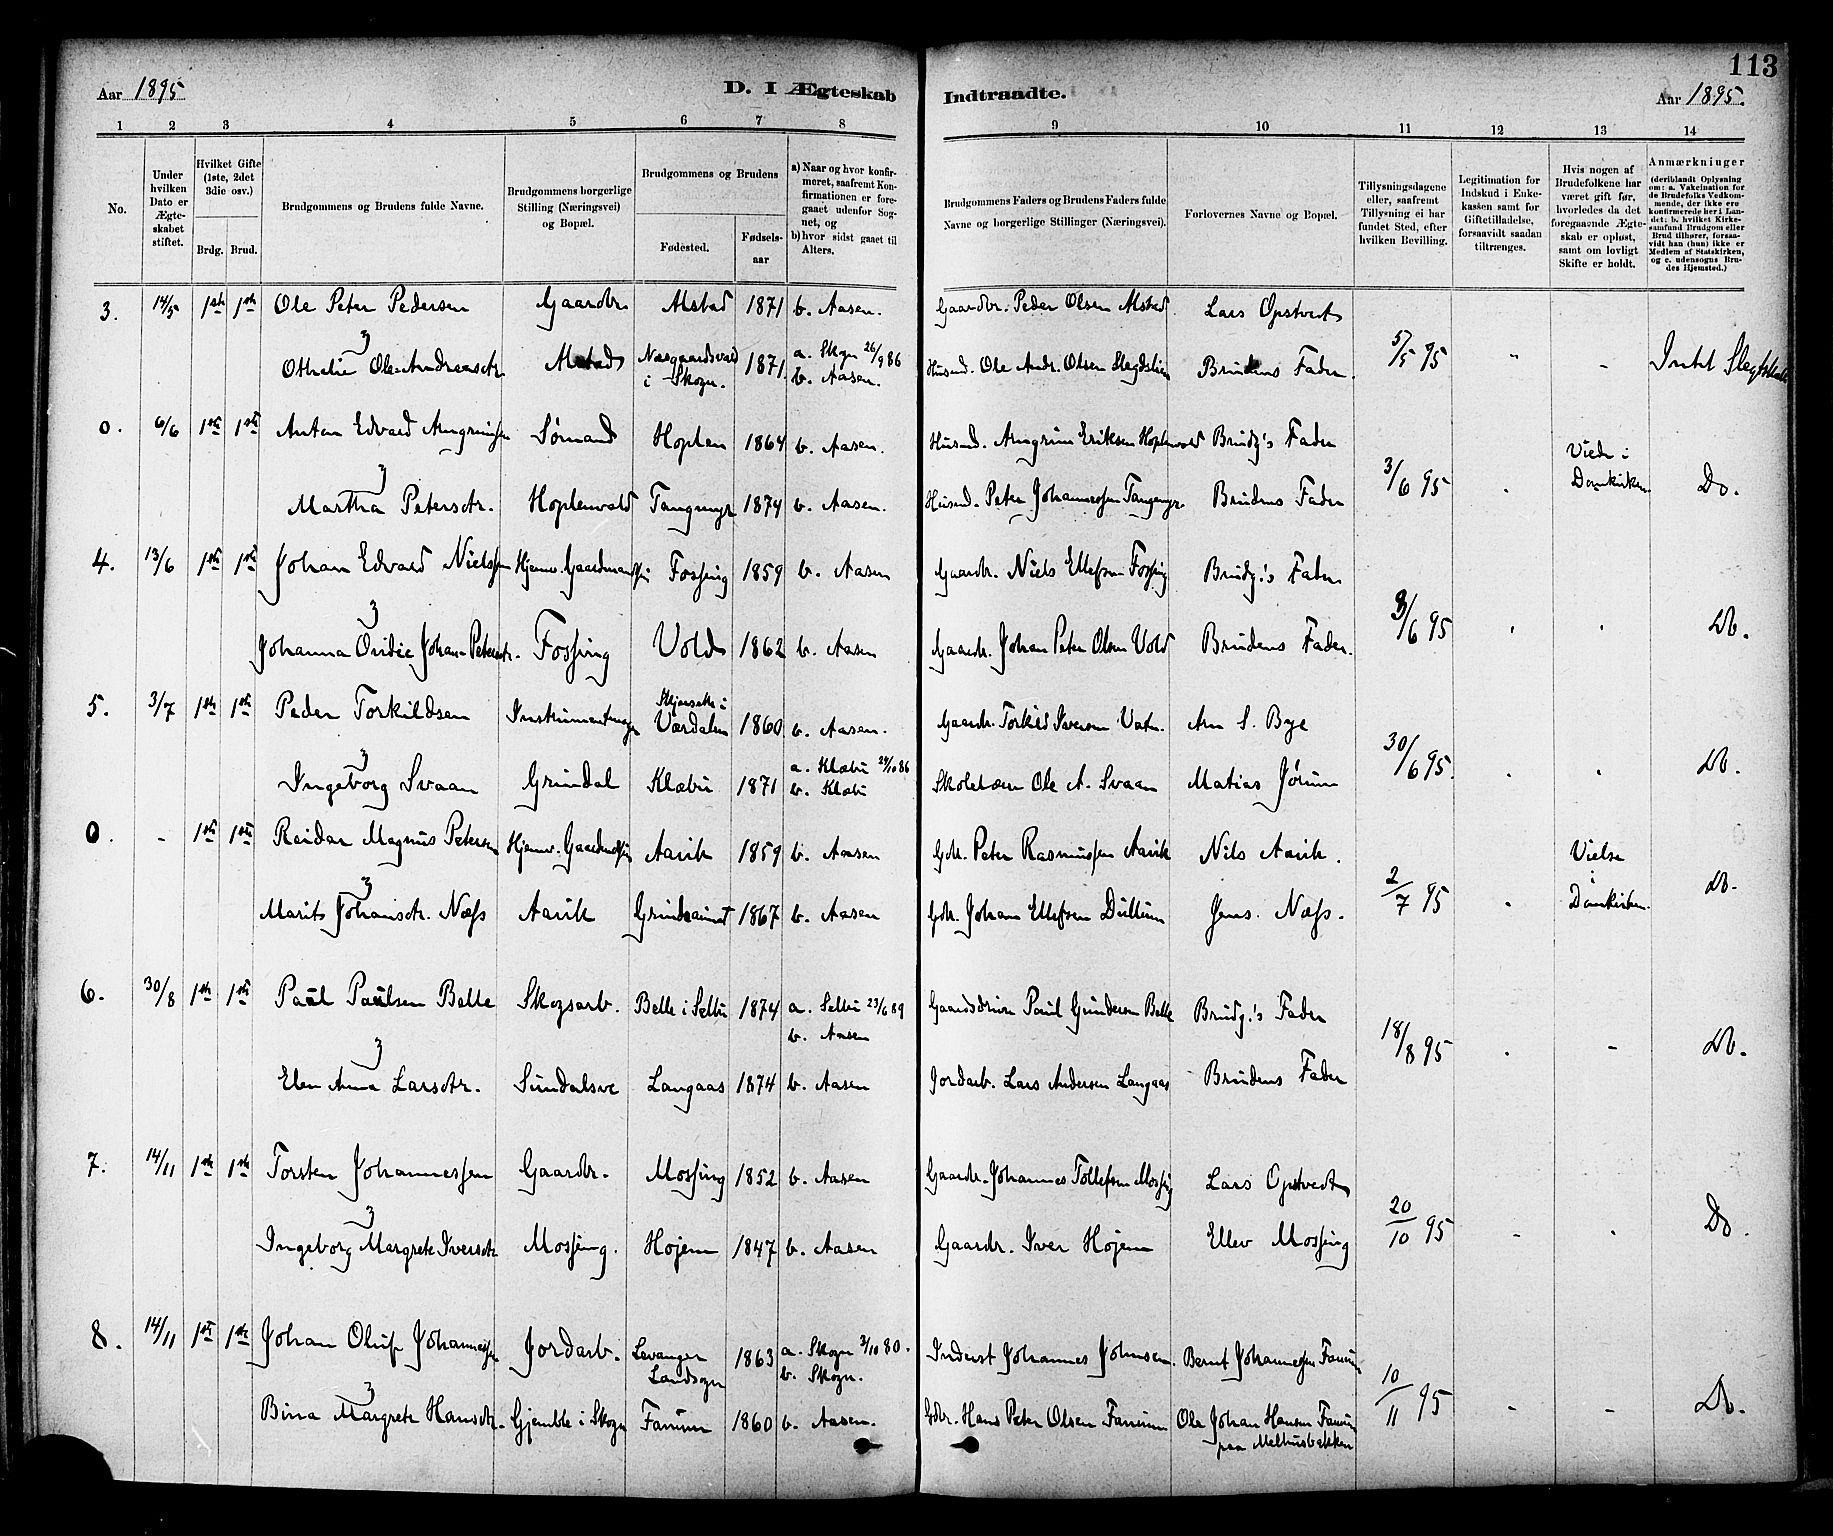 113
Aar 1895
D. I Ægteskab
Indtraadte.
Aar 1895.
1 2 3 4 5 6 7 8
9 10 11 12 13 14
No.
Under hvilken Dato er Ægteskabet stiftet.
Hvilket Gifte (1ste, 2det 3die osv.)
Brdg. Brud.
Brudgommens og Brudens fulde Navne.
Brudgommens borgerlige Stilling (Næringsvei) og Bopæl.
Brudgommens og Brudens
Fødested.
Fødselsaar
a) Naar og hvor konfirmeret, saafremt Konfirmationen er foregaaet udenfor Sognet, og
b) hvor sidst gaaet til Alters.
Brudgommens Faders og Brudens Faders fulde Navne og borgerlige Stillinger (Næringsvei).
Forlovernes Navne og Bopæl.
Tillysningsdagene eller, saafremt Tillysning ei har fundet Sted, efter hvilken Bevilling.
Legitimation for Indskud i Enkekassen samt for Giftetilladelse, forsaavidt saadan tiltrænges.
Hvis nogen af Brudefolkene har været gift før, hvorledes da det foregaaende Ægteskab er opløst, samt om lovligt Skifte er holdt.
Anmærkninger (deriblandt Oplysning om: a. Vakcination for de Brudefolks Vedkommende, der ikke ere konfirmerede her i Landet: b. hvilket Kirkesamfund Brudgom eller Brud tilhører, forsaavidt han (hun) ikke er Medlem af Statskirken, og c. udensogns Brudes Hjemsted.)
3. 14/5 1ste 1ste Ole Peter Pedersen Gaardbr. Alstad 1871 b. Aasen. Gaardbr. Peder Olsen Alstad Lars Opstvedt
Othelie Ole-Andreasdtr. Alstad i Skogn. 1871. a. Skogn 26/9 86 b. Aasen. Husmd. Ole Andr. Olsen Brudens Fader. 5/5 95 " - Intet Slegtskab
0. 6/6 1ste 1ste Anton Edvard Arngrimsen Sømand Hoplen 1864 b. Aasen. Husmd. Arngrim Eriksen Hoplenvald Brudg's Fader
Martha Petersdtr. Hoplenvald 1874 b. Aasen. Husmd. Peter Johannessen Brudens Fader 3/6 95 . Viede i Domkirken. Do.
4. 13/6 1ste 1ste Johan Edvard Nielssen Hjemv. Fossing 1859 b. Aasen Gaardbr. Niels Ellefsen Fossing Brudg.'s Fader
Johanna Johan Petersdtr. Fossing Vold 1862 b. Aasen Gaardbr. Johan Peter Olsen Vold Brudens Fader. 9/6 95 . . Do.
5. 3/7 1ste 1ste Peder Torkildsen Instrumentmager i Værdalen 1860 b. Aasen. Gaardbr. Torkild Iversen Arn S. Bye
Ingeborg Svaan Grundal Klæbu 1871 a. Klæbu 24/10 86 b. Klæbu Skolelærer Ole A. Svaan Matias Jørum 30/6 95. . . Do.
0. - 1ste 1ste Reidar Magnus Petersen Hjemv. Aavik 1859 b. Aasen Gbr. Peter Rasmussen Aavik Nils Aavik.
Marit Johansdtr. Næss Aavik 1867 b. Aasen Gbr. Johan Ellefsen Dullum Jens Næss. 2/7 95 . Vielse i Domkirken. Do.
6. 30/8 1ste 1ste Paul Paulsen Balle Skogsarb. Balle i Selbu 1874 a. Selbu 23/6 89 b. Aasen Paul Gundersen Balle Brudg.'s Fader
Elen Anna Larsdtr. Sundalsve Langaas 1874 b. Aasen Jordarb. Lars Andersen Langaas Brudens Fader 18/8 95 . - Do.
7. 14/11 1ste 1ste Torsten Johannessen Gaardbr. Mossing 1852 b. Aasen Gaardbr. Johannes Tollefsen Mossing Lars Opstvedt
Ingeborg Margrete Iversdtr. Mossing. Højem 1847 b. Aasen Gaardbr. Iver Højem Ellev Mossing 20/10 95 - . Do.
8. 14/11 1ste 1ste Johan Oluf Johannessen Jordarb. Levanger Landsogn 1863 a. Skogn 3/10 80. b. Skogn. Inderst Johannes Johnsen. Bernt Johannessen Fanum
Bina Margrete Hansdtr. Gjemble i Skogn Fanum 1860 b. Aasen. Gbr. Hans Peter Olsen Fanum Ole Johan Hansen Fanum paa Melhusbakken 10/11 95 - - Do.